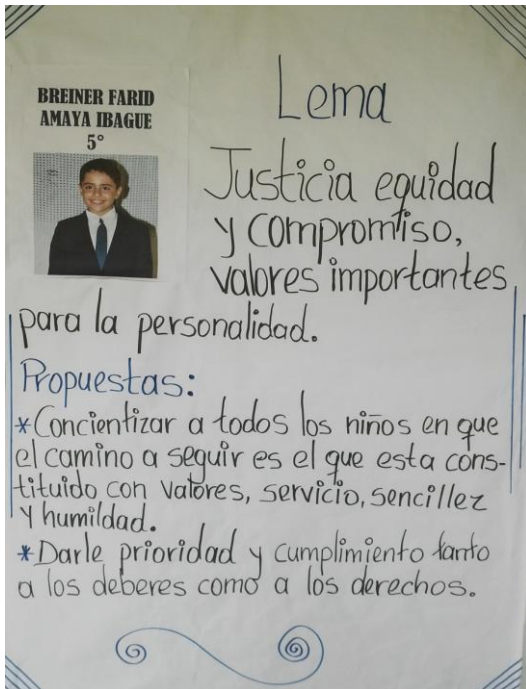 BREINER FARID
AMAYA IBAGUE
5°
Lema
Justicia equidad
y compromiso,
valores importantes
para la personalidad.
Propuestas:
*Concientizar a todos los niños en que
el camino a seguir es el que esta cons-
tituido con valores, servicio, sencillez
y humildad.
*Darle prioridad y cumplimiento tanto
a los deberes como a los derechos.